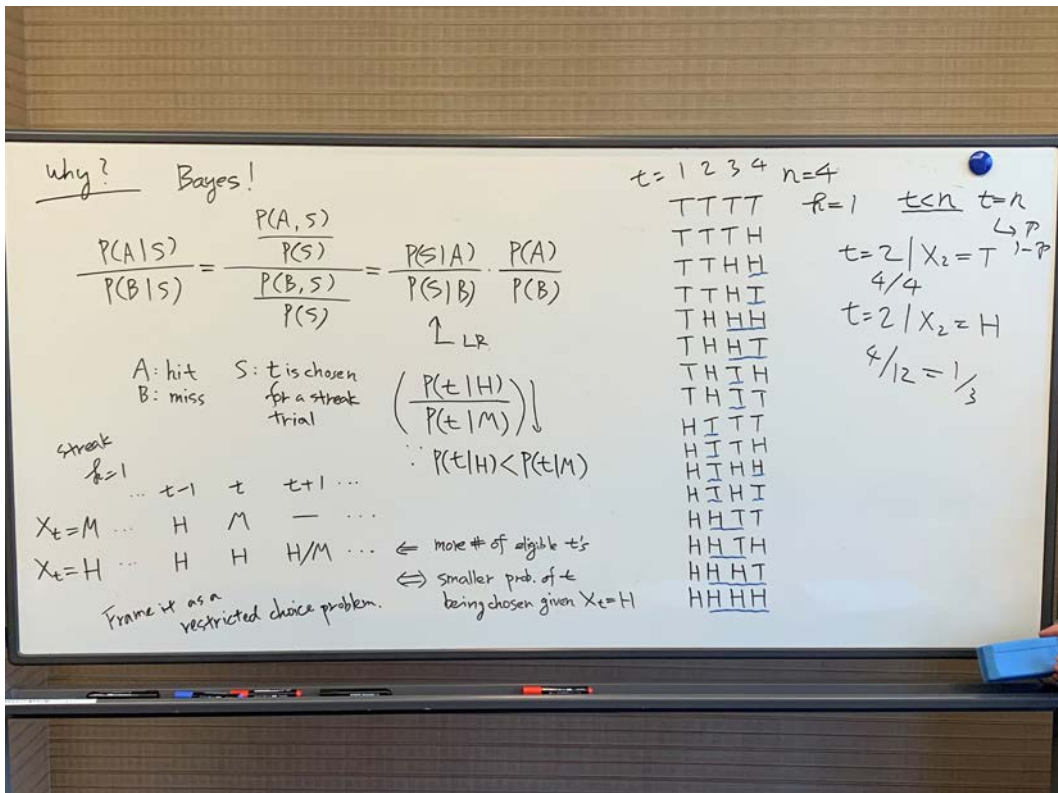 why? Bayes!
P(A|S) / P(B|S) = (P(A,S) / P(S)) / (P(B,S) / P(S)) = P(S|A) / P(S|B) · P(A) / P(B)
↑ LR
A: hit
B: miss
S: t is chosen
for a streak
trial
(P(t|H) / P(t|M)) ↓
∵ P(t|H) < P(t|M)
streak
k=1
... t-1 t t+1 ...
Xt=M ... H M — ...
Xt=H ... H H H/M ... ⇐ more # of eligible t's
⇔ smaller prob. of t
being chosen given Xt=H
Frame it as a
restricted choice problem.
t= 1 2 3 4 n=4
TTTT
TTTH
TTHH
TTHT
THHH
THHT
THTH
THTT
HTTT
HTTH
HTHH
HTHT
HHTT
HHTH
HHHT
HHHH
k=1 t<n t=n
↳ p
1-p
t=2 | X2 = T
4/4
t=2 | X2 = H
4/12 = 1/3